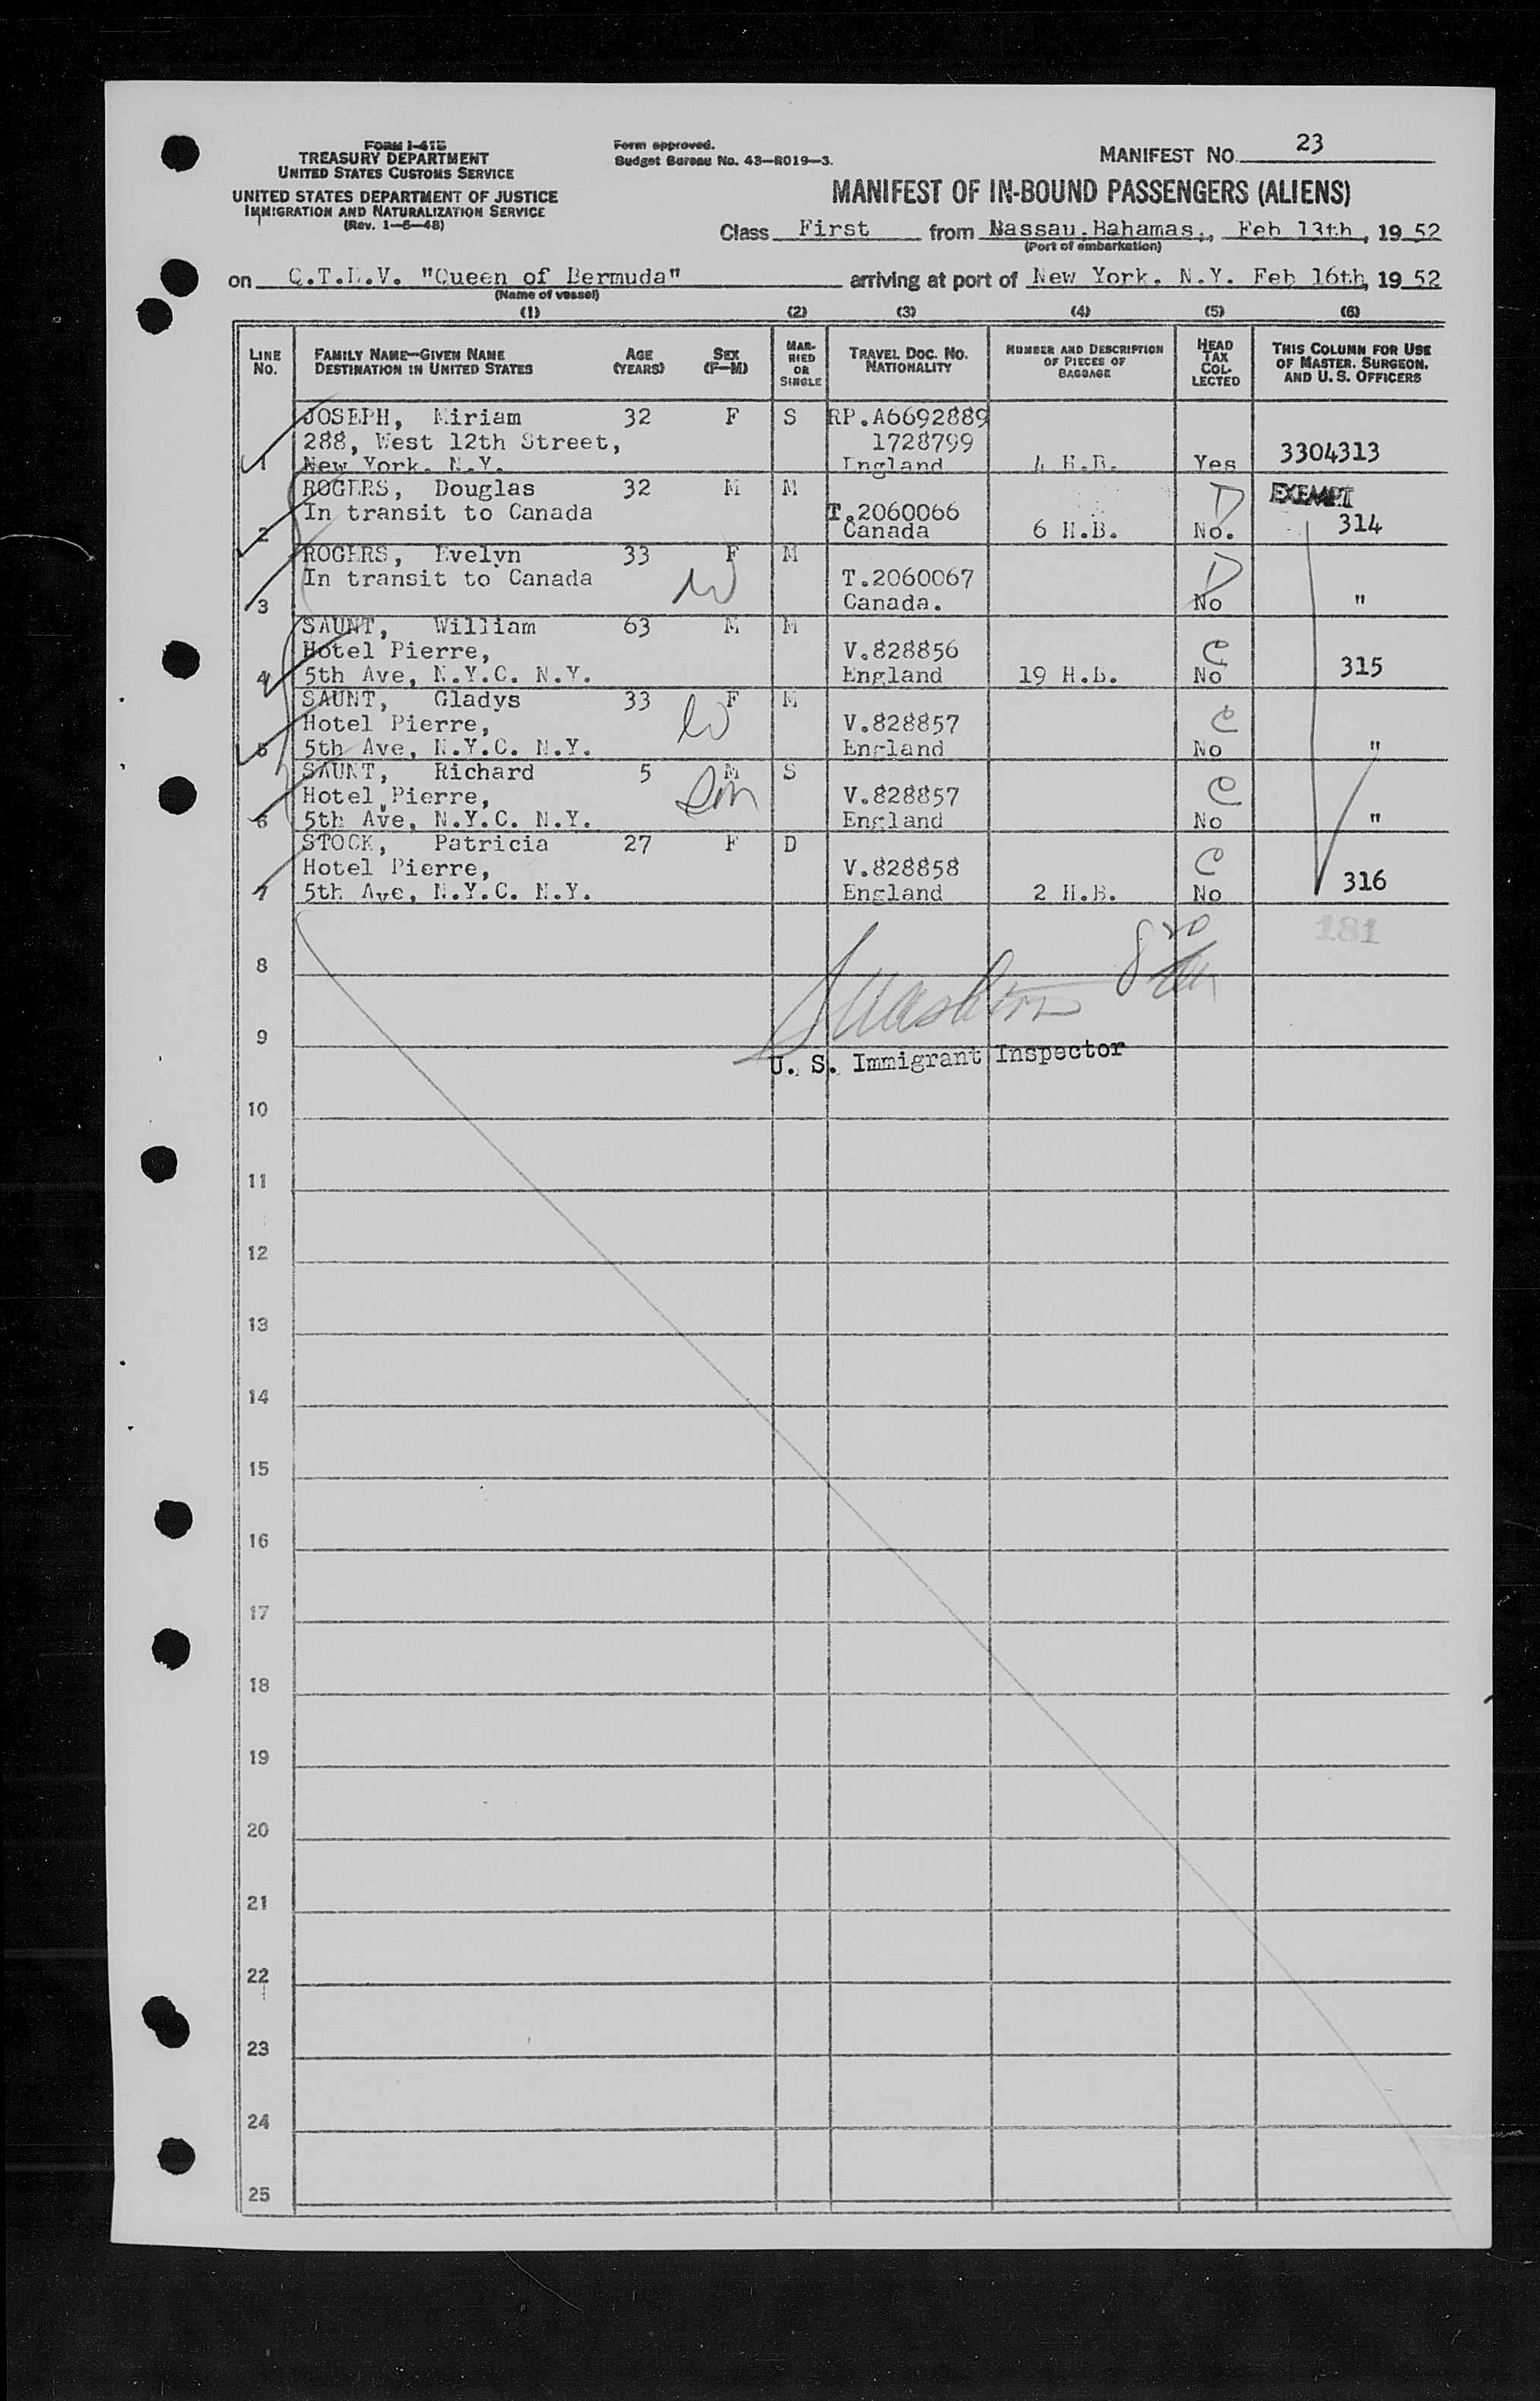 FORM I-415
TREASURY DEPARTMENT
UNITED STATES CUSTOMS SERVICE
UNITED STATES DEPARTMENT OF JUSTICE
IMMIGRATION AND NATURALIZATION SERVICE
(Rev. 1-5-48)
Form approved.
Budget Bureau No. 43-R019-3.
MANIFEST NO. 23
MANIFEST OF IN-BOUND PASSENGERS (ALIENS)
Class First from Nassau.Bahamas., Feb 13th, 19 52
(Port of embarkation)
on Q.T.E.V. "Queen of Bermuda" arriving at port of New York. N.Y. Feb 16th, 19 52
(Name of vessel)
(1) (2) (3) (4) (5) (6)
LINE NO. FAMILY NAME-GIVEN NAME DESTINATION IN UNITED STATES AGE (YEARS) SEX (F-M) MAR-RIED OR SINGLE TRAVEL DOC. NO. NATIONALITY NUMBER AND DESCRIPTION OF PIECES OF BAGGAGE HEAD TAX COL-LECTED THIS COLUMN FOR USE OF MASTER. SURGEON. AND U. S. OFFICERS
JOSEPH, Miriam 32 F S RP.A6692889
288, West 12th Street, 1728799
1 New York. N.Y. England 4 H.B. Yes 3304313
ROGERS, Douglas 32 M M D EXEMPT
In transit to Canada T.2060066
2 Canada 6 H.B. No. 314
ROGERS, Evelyn 33 F M D
In transit to Canada W T.2060067
3 Canada. No "
SAUNT, William 63 M M
Hotel Pierre, V.828856 C
4 5th Ave, N.Y.C. N.Y. England 19 H.B. No 315
SAUNT, Gladys 33 F M
Hotel Pierre, W V.828857 C
5 5th Ave, N.Y.C. N.Y. England No "
SAUNT, Richard 5 M S
Hotel Pierre, Son V.828857 C
6 5th Ave, N.Y.C. N.Y. England No "
STOCK, Patricia 27 F D
Hotel Pierre, V.828858 C
7 5th Ave, N.Y.C. N.Y. England 2 H.B. No 316
181
8
9
U. S. Immigrant Inspector
10
11
12
13
14
15
16
17
18
19
20
21
22
23
24
25